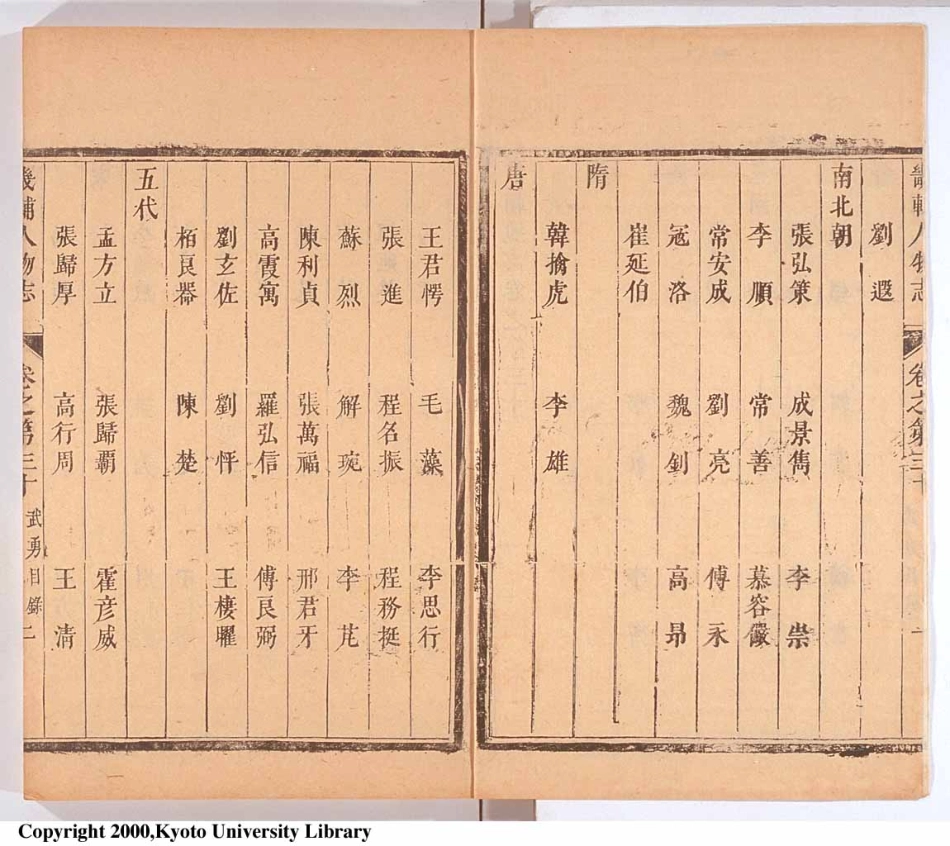 畿輔人物志 卷之第三十 一
劉遐
南北朝
張弘策 成景雋 李崇
李順 常善 慕容儼
常安成 劉亮 傅永
寇洛 魏釗 高昻
崔延伯
隋
韓擒虎 李雄
唐
王君愕 毛藻 李思行
張進 程名振 程務挺
蘇烈 解琬 李芃
陳利貞 張萬福 邢君牙
高霞寓 羅弘信 傅良弼
劉玄佐 劉怦 王棲曜
栢良器 陳楚
五代
孟方立 張歸霸 霍彥威
張歸厚 高行周 王清
畿輔人物志 卷之第三十 武勇 目錄 二
Copyright 2000,Kyoto University Library